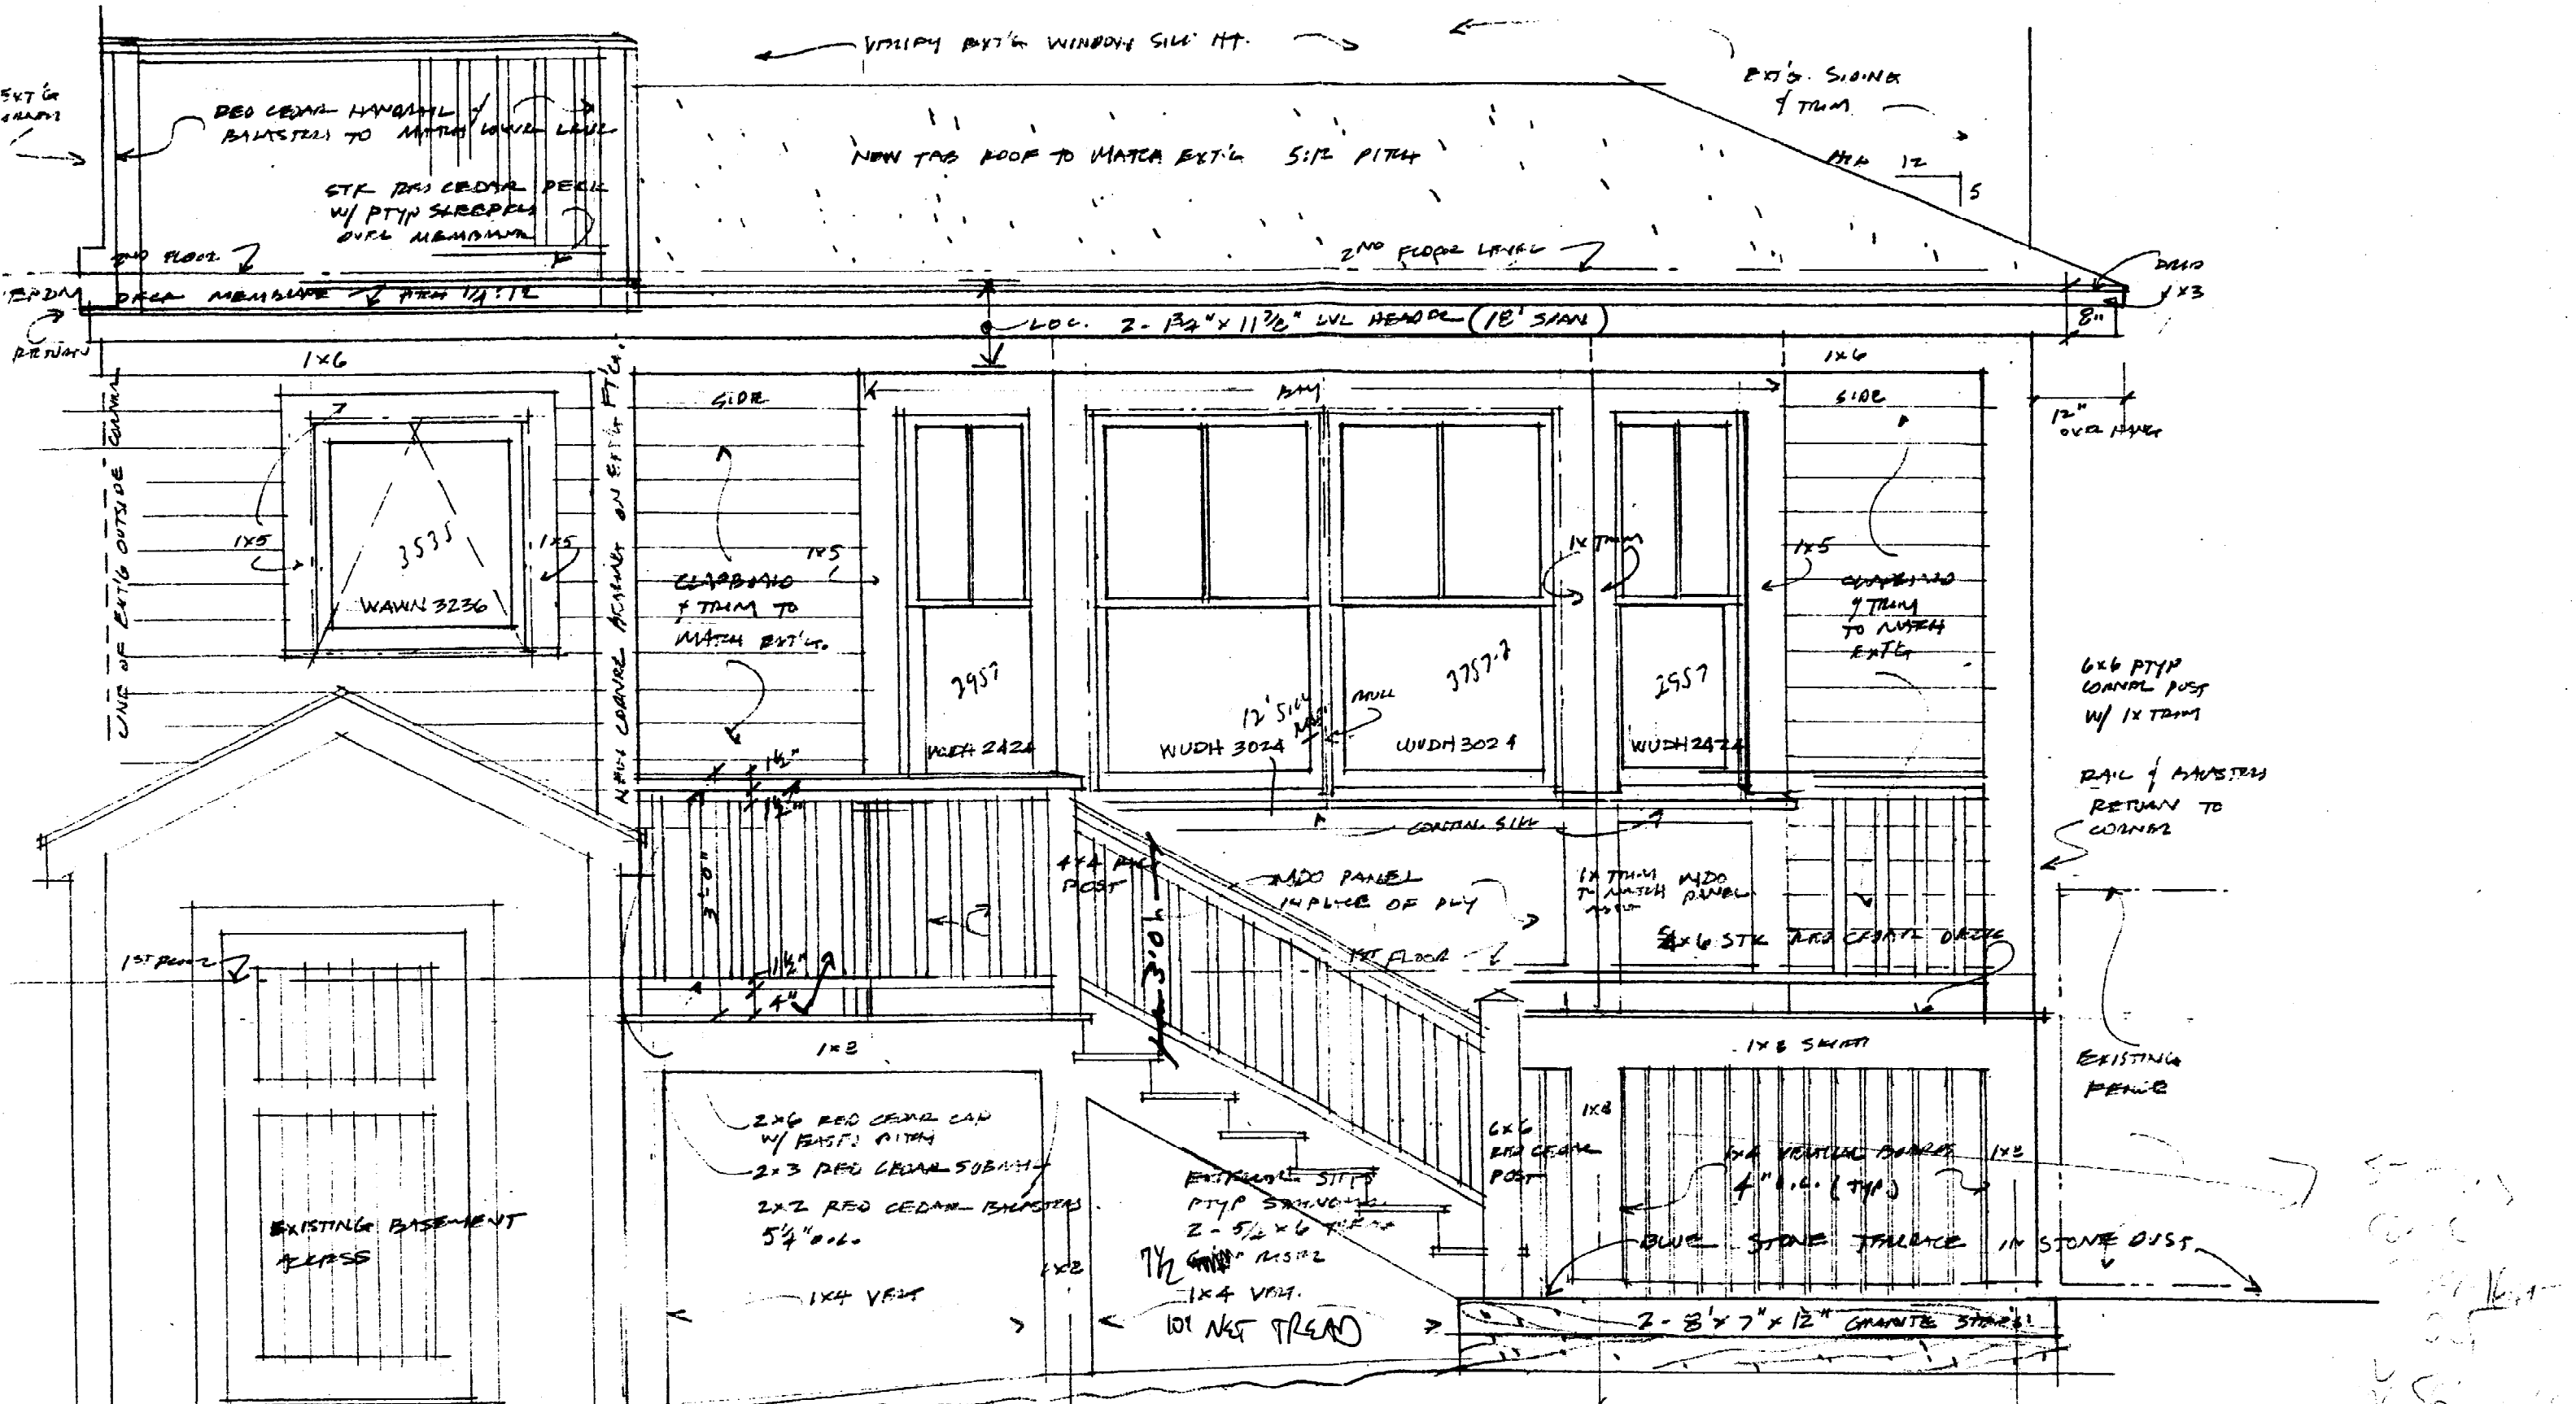 VERIFY EXT'G WINDOW SILL HT.
EXT'G. SIDING
& TRIM
EXT'G
RED CEDAR HANDRAIL &
BALASTERS TO MATCH LOWER LEVEL
STK RED CEDAR DECK
W/ PTYP SLEEPERS
OVER MEMBRANE
NEW TAB ROOF TO MATCH EXT'G 5:12 PITCH
12
5
2ND FLOOR
2ND FLOOR LEVEL
EPDM DECK MEMBRANE PITCH 1/4:12
RETURN
LOC. 2 - 1 3/4" x 11 7/8" LVL HEADER (18' SPAN)
8"
1x3
1x6
1x6
12"
OVER HANG
LINE OF EXT'G OUTSIDE CORNER
NEW CORNER BEARING ON EXT'G FT'G.
SIDE
BAY
SIDE
1x5
3535
1x5
WAWN 3236
CLAPBOARD
& TRIM TO
MATCH EXT'G.
1x5
1x TRIM
1x5
CLAPBOARD
& TRIM
TO MATCH
EXT'G
2957
3757-2
2957
12' SILL
MULL
WUDH 2424
WUDH 3024
WUDH 3024
WUDH 2424
6x6 PTYP
CORNER POST
W/ 1x TRIM
RAIL & BALASTERS
RETURN TO
CORNER
1 1/2"
1 1/2"
3'-0"
CONTIN. SILL
4x4
POST
3'-0"
MDO PANEL
IN PLACE OF PLY
1x TRIM
TO MATCH
MDO
PANEL
5/4x6 STK RED CEDAR DECK
1ST FLOOR
1ST FLOOR
1 1/2"
4"
1x8
1x8 SKIRT
EXISTING
FENCE
2x6 RED CEDAR CAP
W/ EASED PITCH
2x3 RED CEDAR SUBRAIL
2x2 RED CEDAR BALASTERS
5 1/4" o.c.
EXTERIOR STEPS
PTYP STRINGERS
2 - 5/4 x 6 TREAD
7 1/2 RISER
1x4 VERT.
10" NET TREAD
6x6
RED CEDAR
POST
1x8
1x4 VERTICAL BOARDS
4" o.c. (TYP)
1x8
EXISTING BASEMENT
ACCESS
1x4 VERT
1x8
BLUE STONE TERRACE IN STONE DUST
2 - 8' x 7" x 12" GRANITE STEPS